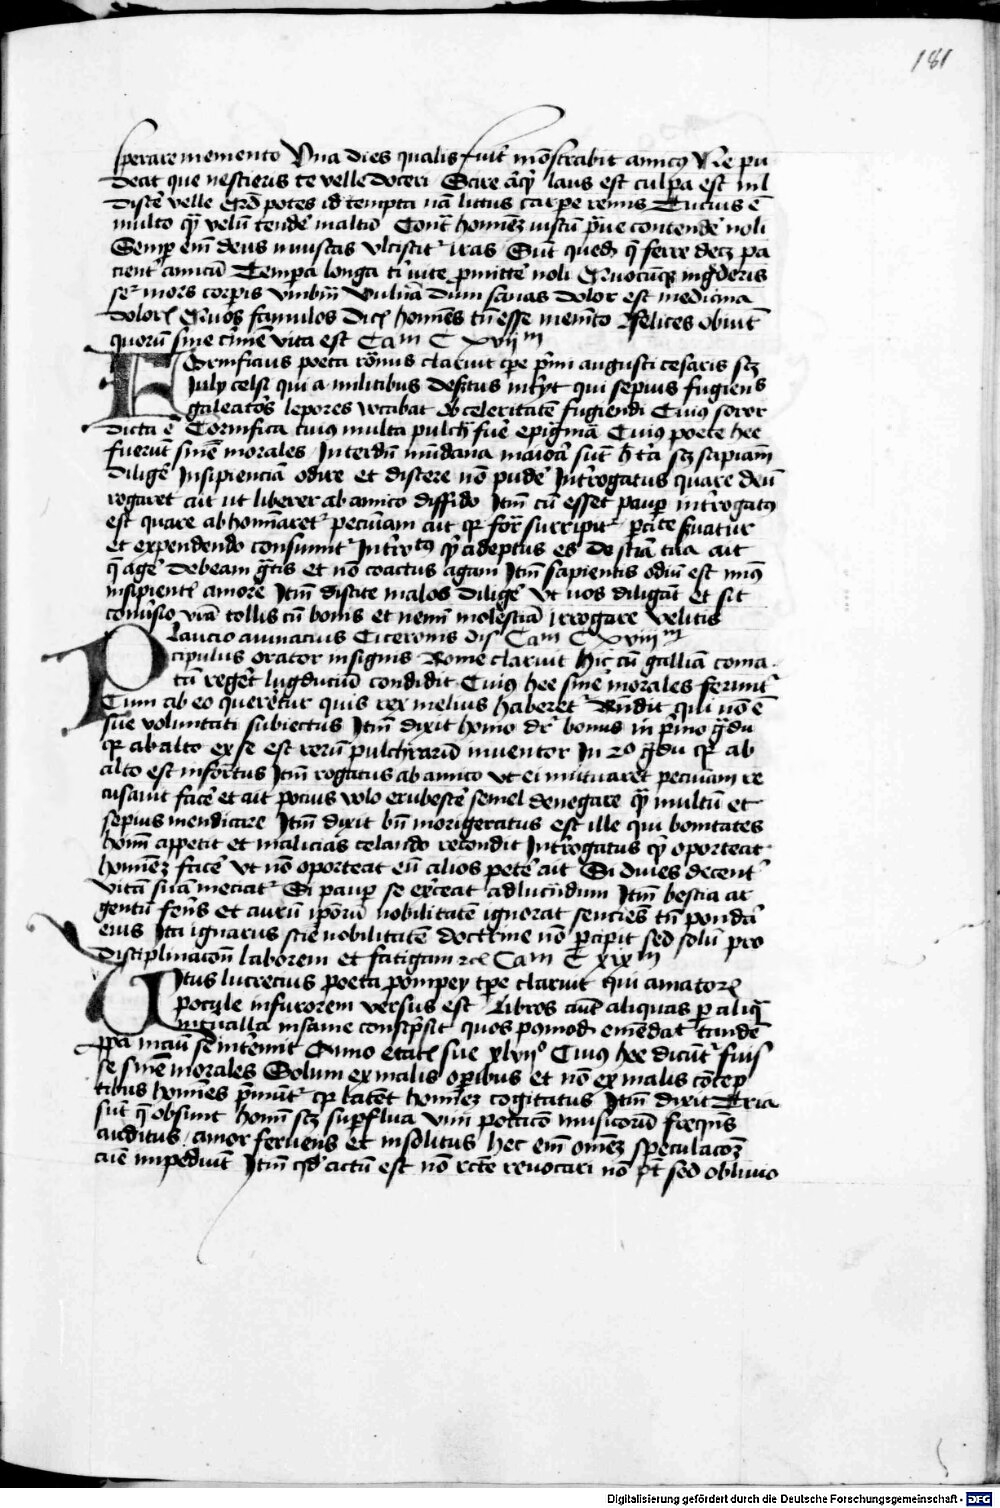 181
sperare memento Una dies qualis fuit mostrabit amicus Ne pu
deat que nescieris te velle doceri Scire laus est culpa est nil
discere velle Quod potes id tempta nam littus carpere remis Tucius e
multo quam velum tendere in altum Contra hominem iustum praue contendere noli
Semper enim deus iniustas vlciscitur iras Sunt quedam que ferre decet pa
cienter amicum Tempora longa tibi vite promittere noli Quocumque ingrederis
sequitur mors corporis vmbram Vulnera dum sanas dolor est medicina
doloris Quos famulos dicis homines tamen esse memento felices obiunt
quorum sine crimine vita est Cam C xviijm
Cornificius poeta romanus claruit tempore primi augusti cesaris scilicet
July celsi qui a militibus desertus interijt qui sepius fugiens
galeatos lepores vocabat ob celeritatem fugiendi Cuius soror
dicta e Cornifica cuius multa pulchra fuere epigramata Cuius poete hec
fuerunt sentencie morales Interdum mundana maiora sunt scilicet sapiam
diligere Insipienciam odire et discere non pudere Interrogatus quare deum
rogaret ait ut liberer ab amico diffido Item cum esset pauper interrogatus
est quare abhominaretur pecuniam ait quia forte surripitur parcite seruatur
et expendendo consumitur Interrogatus quid adeptus es de sciencia tua ait
que agere debeam gratis et non coactus agam Item sapientis odium est minus
insipientis amore Item discite malos diligere vt vos diligant et sit
conuersio vestra tollis cum bonis et nemini molestiam irrogare velitis
Plancio munacius Ciceronis dis Cam C xviiijm
cipulus orator insignis Rome claruit hic cum galliam coma
tam regeret lugdunum condidit Cuius hee sentencie morales feruntur
Cum ab eo quereretur quis rex melius haberetur Respondit qui non e
sue voluntati subiectus Item dixit homo dicitur bonus in primo gradu
quia ab alto ex se est rerum pulchrarum inuentor In 2o gradu quia ab
alto est insertus Item rogatus ab amico vt ei mutuaret pecuniam re
cusauit facere et ait pocius volo erubescere semel denegare quam multum et
sepius mendicare Item dixit bene morigeratus est ille qui bonitates
hominum appetit et malicias celando recondit Interrogatus quid oporteat
hominem facere vt non oporteat eum alios petere ait Si diues decenter
vitam suam meciatur Si pauper se exerceat ad lucrandum Item bestia ar
gentum ferens et aurum ipsorum nobilitatem ignorat senciens tamen pondera
eius Ita ignarus scire nobilitatem doctrine non percipit sed solum pro
disciplinacione laborem et fatigam etc Cam C xixm
Titus lucrecius poeta pompey tempore claruit qui amatoris
poculo in furorem versus est Libros autem aliquas per aliqua
interualla insanie conscripsit quos postmodum emendat tandem
propria manu se interemit Anno etatis sue xlvijo Cuius hee dicuntur fuis
se sentencie morales Solum ex malis operibus et non ex malis contep
tibus homines premuntur quia latent hominem cogitatus Item dixit Tria
sunt que obsunt homini scilicet superflua vini potacio musicorum frequens
auditus / amor feruens et insolitus hec enim omnem speculacoz
aue impediunt Item quod actum est non recte reuocari non potest sed obliuio
Digitalisierung gefördert durch die Deutsche Forschungsgemeinschaft - DFG